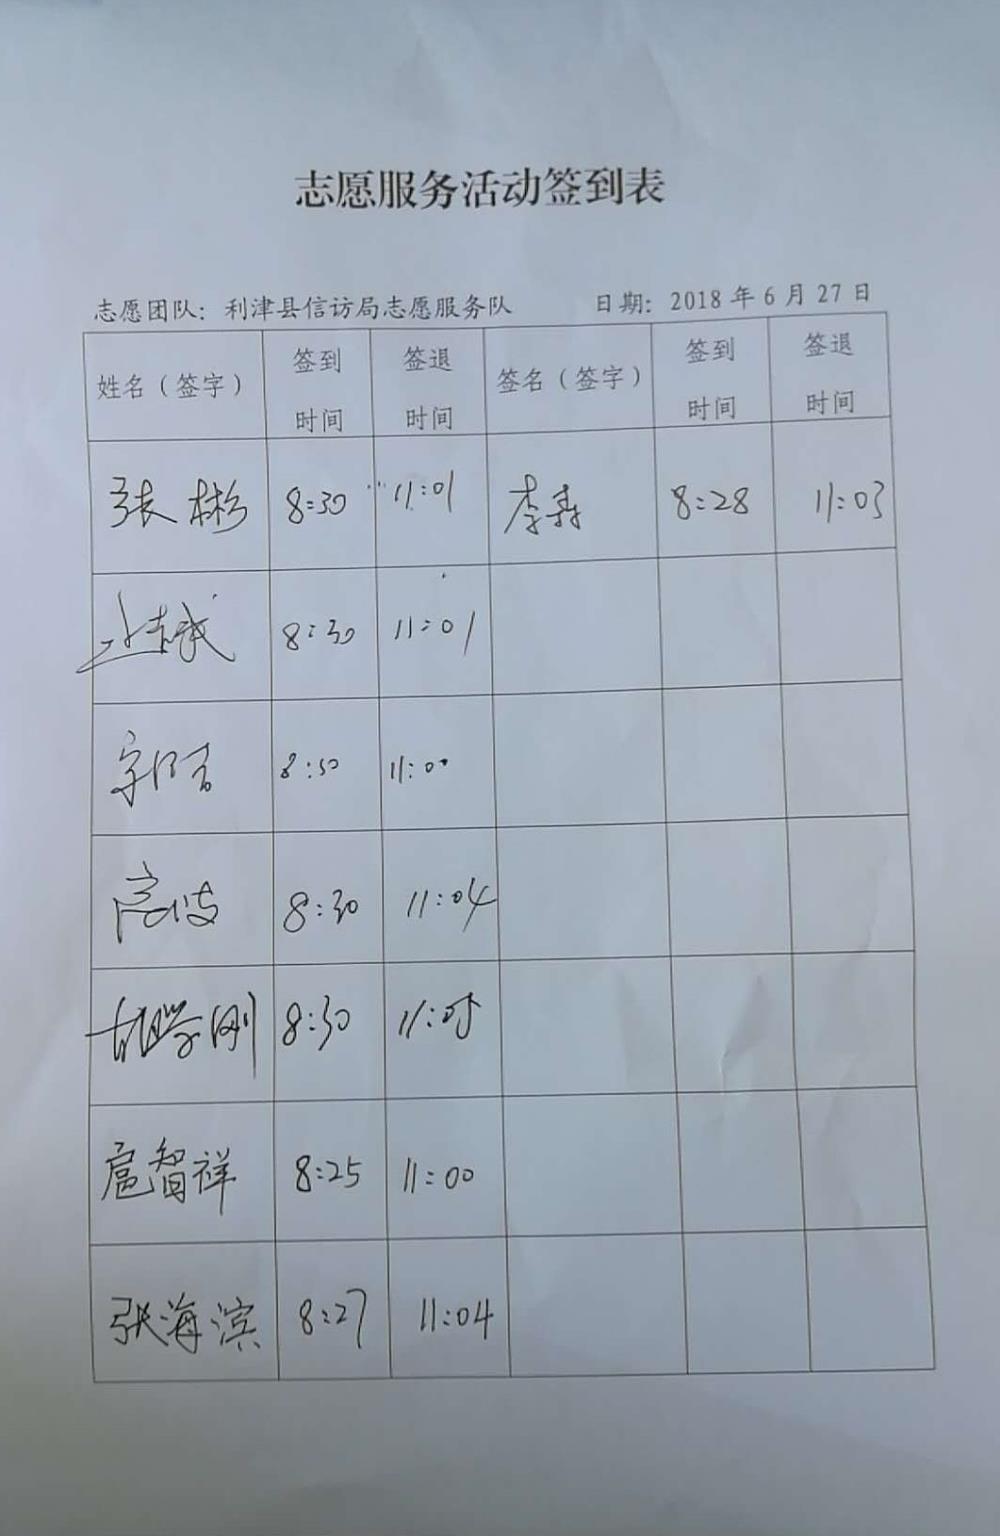 志愿服务活动签到表
志愿团队：利津县信访局志愿服务队 日期：2018 年 6 月 27 日
姓名（签字） 签到时间 签退时间 签名（签字） 签到时间 签退时间
张彬 8:30 11:01 李寿 8:28 11:03
8:30 11:01
8:30 11:00
高波 8:30 11:04
胡学刚 8:30 11:05
扈智祥 8:25 11:00
张海滨 8:27 11:04